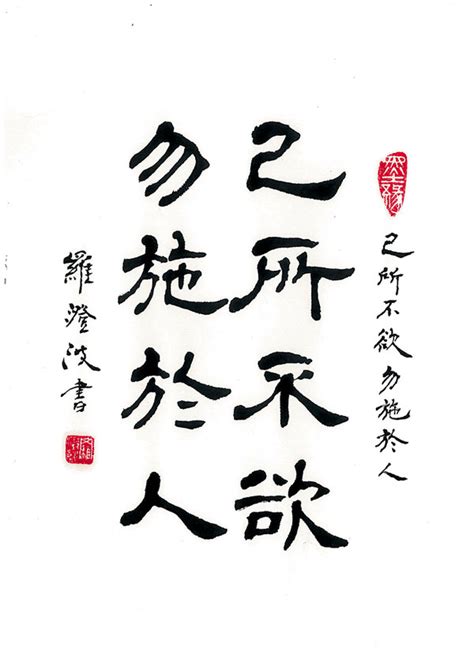 己所不欲勿施於人
己所不欲
勿施於人
羅澄波書